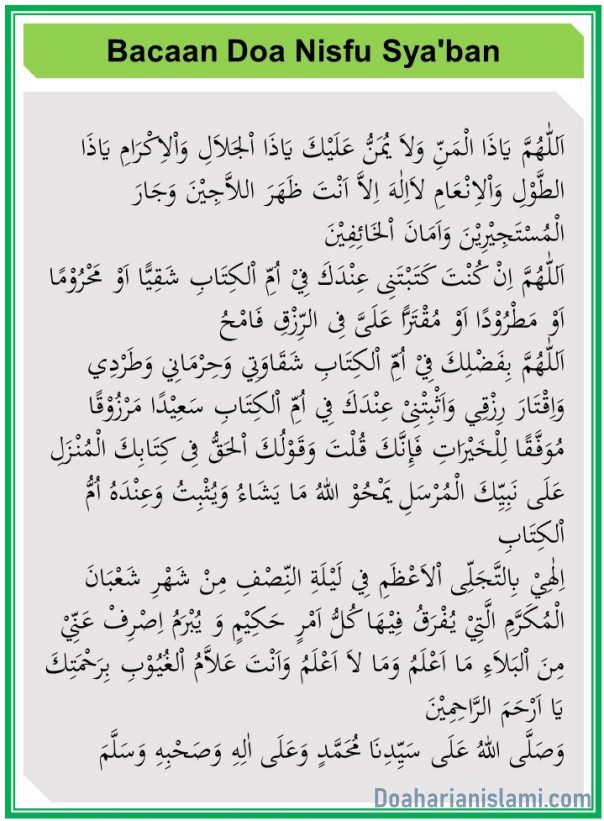 Bacaan Doa Nisfu Sya'ban
اَللّٰهُمَّ يَاذَا الْمَنِّ وَلاَ يُمَنُّ عَلَيْكَ يَاذَا اْلجَلاَلِ وَاْلاِكْرَامِ يَاذَا
الطَّوْلِ وَاْلاِنْعَامِ لاَاِلٰهَ اِلاَّ اَنْتَ ظَهَرَ اللاَّجِيْنَ وَجَارَ
الْمُسْتَجِيْرِيْنَ وَاَمَانَ اْلخَائِفِيْنَ
اَللّٰهُمَّ اِنْ كُنْتَ كَتَبْتَنِى عِنْدَكَ فِيْ اُمِّ اْلكِتَابِ شَقِيًّا اَوْ مَحْرُوْمًا
اَوْ مَطْرُوْدًا اَوْ مُقْتَرًّا عَلَىَّ فِى الرِّزْقِ فَامْحُ
اَللّٰهُمَّ بِفَضْلِكَ فِيْ اُمِّ اْلكِتَابِ شَقَاوَتِي وَحِرْمَانِي وَطَرْدِي
وَاِقْتَارَ رِزْقِي وَاَثْبِتْنِىْ عِنْدَكَ فِي اُمِّ اْلكِتَابِ سَعِيْدًا مَرْزُوْقًا
مُوَفَّقًا لِلْخَيْرَاتِ فَاِنَّكَ قُلْتَ وَقَوْلُكَ اْلحَقُّ فِى كِتَابِكَ الْمُنْزَلِ
عَلَى نَبِيِّكَ الْمُرْسَلِ يَمْحُوْ اللهُ مَا يَشَاءُ وَيُثْبِتُ وَعِنْدَهُ اُمُّ
اْلكِتَابِ
اِلٰهِيْ بِالتَّجَلِّى اْلاَعْظَمِ فِي لَيْلَةِ النِّصْفِ مِنْ شَهْرِ شَعْبَانَ
الْمُكَرَّمِ الَّتِيْ يُفْرَقُ فِيْهَا كُلُّ اَمْرٍ حَكِيْمٍ وَ يُبْرَمُ اِصْرِفْ عَنِّيْ
مِنَ اْلبَلاَءِ مَا اَعْلَمُ وَمَا لاَ اَعْلَمُ وَاَنْتَ عَلاَّمُ اْلغُيُوْبِ بِرَحْمَتِكَ
يَا اَرْحَمَ الرَّاحِمِيْنَ
وَصَلَّى اللهُ عَلَى سَيِّدِنَا مُحَمَّدٍ وَعَلَى اٰلِهِ وَصَحْبِهِ وَسَلَّمَ
Doaharianislami.com